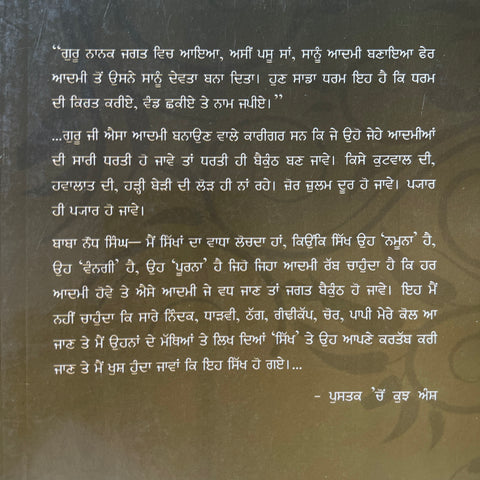 “ਗੁਰੂ ਨਾਨਕ ਜਗਤ ਵਿਚ ਆਇਆ, ਅਸੀਂ ਪਸੂ ਸਾਂ, ਸਾਨੂੰ ਆਦਮੀ ਬਣਾਇਆ ਫੇਰ
ਆਦਮੀ ਤੋਂ ਉਸਨੇ ਸਾਨੂੰ ਦੇਵਤਾ ਬਨਾ ਦਿਤਾ। ਹੁਣ ਸਾਡਾ ਧਰਮ ਇਹ ਹੈ ਕਿ ਧਰਮ
ਦੀ ਕਿਰਤ ਕਰੀਏ, ਵੰਡ ਛਕੀਏ ਤੇ ਨਾਮ ਜਪੀਏ।”
...ਗੁਰੂ ਜੀ ਐਸਾ ਆਦਮੀ ਬਨਾਉਣ ਵਾਲੇ ਕਾਰੀਗਰ ਸਨ ਕਿ ਜੇ ਉਹੋ ਜੇਹੇ ਆਦਮੀਆਂ
ਦੀ ਸਾਰੀ ਧਰਤੀ ਹੋ ਜਾਵੇ ਤਾਂ ਧਰਤੀ ਹੀ ਬੈਕੁੰਠ ਬਣ ਜਾਵੇ। ਕਿਸੇ ਕੁਟਵਾਲ ਦੀ,
ਹਵਾਲਾਤ ਦੀ, ਹੜੀ ਬੇੜੀ ਦੀ ਲੋੜ ਹੀ ਨਾਂ ਰਹੇ। ਜ਼ੋਰ ਜ਼ੁਲਮ ਦੂਰ ਹੋ ਜਾਵੇ। ਪ੍ਯਾਰ
ਹੀ ਪ੍ਯਾਰ ਹੋ ਜਾਵੇ।
ਬਾਬਾ ਨੌਧ ਸਿੰਘ— ਮੈਂ ਸਿੱਖਾਂ ਦਾ ਵਾਧਾ ਲੋਚਦਾ ਹਾਂ, ਕਿਉਂਕਿ ਸਿੱਖ ਉਹ ‘ਨਮੂਨਾ’ ਹੈ,
ਉਹ ‘ਵੰਨਗੀ’ ਹੈ, ਉਹ ‘ਪੂਰਨਾ’ ਹੈ ਜਿਹੋ ਜਿਹਾ ਆਦਮੀ ਰੱਬ ਚਾਹੁੰਦਾ ਹੈ ਕਿ ਹਰ
ਆਦਮੀ ਹੋਵੇ ਤੇ ਐਸੇ ਆਦਮੀ ਜੇ ਵਧ ਜਾਣ ਤਾਂ ਜਗਤ ਬੈਕੁੰਠ ਹੋ ਜਾਵੇ। ਇਹ ਮੈਂ
ਨਹੀਂ ਚਾਹੁੰਦਾ ਕਿ ਸਾਰੇ ਨਿੰਦਕ, ਧਾੜਵੀ, ਠੱਗ, ਗੰਢੀਕੱਪ, ਚੋਰ, ਪਾਪੀ ਮੇਰੇ ਕੋਲ ਆ
ਜਾਣ ਤੇ ਮੈਂ ਉਹਨਾਂ ਦੇ ਮੱਥਿਆਂ ਤੇ ਲਿਖ ਦਿਆਂ ‘ਸਿੱਖ’ ਤੇ ਉਹ ਆਪਣੇ ਕਰਤੱਬ ਕਰੀ
ਜਾਣ ਤੇ ਮੈਂ ਖੁਸ਼ ਹੁੰਦਾ ਜਾਵਾਂ ਕਿ ਇਹ ਸਿੱਖ ਹੋ ਗਏ।...
- ਪੁਸਤਕ ’ਚੋਂ ਕੁਝ ਅੰਸ਼